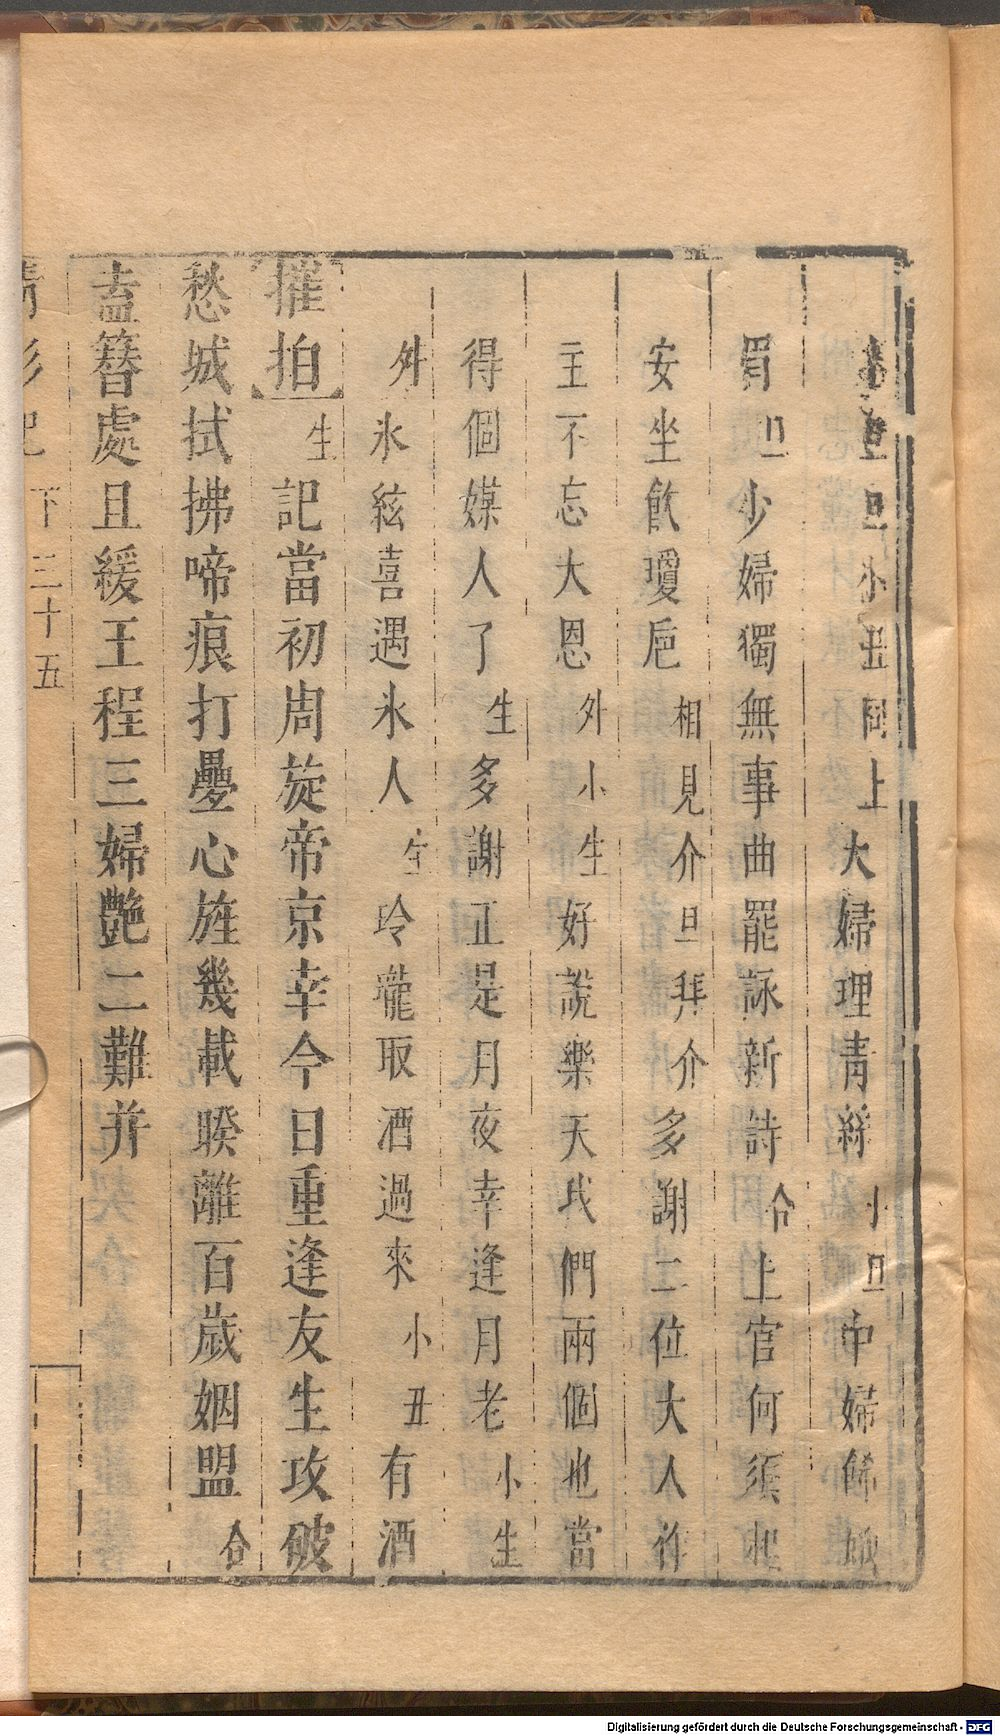 旦小丑同上大婦理青絲小旦中婦飾娥
眉旦少婦獨無事曲罷詠新詩合上官何須起
安坐飲瓊巵相見介旦拜介多謝二位大人作
主不忘大恩外小生好說樂天我們兩個也當
得個媒人了生多謝正是月夜幸逢月老小生
外氷絃喜遇氷人生玲瓏取酒過來小丑有酒
摧拍生記當初周旋帝京幸今日重逢友生攻破
愁城拭拂啼痕打疊心旌幾載睽離百歲姻盟合
盍簪處且緩王程三婦艷二難并
下 三十五
Digitalisierung gefördert durch die Deutsche Forschungsgemeinschaft - DFG